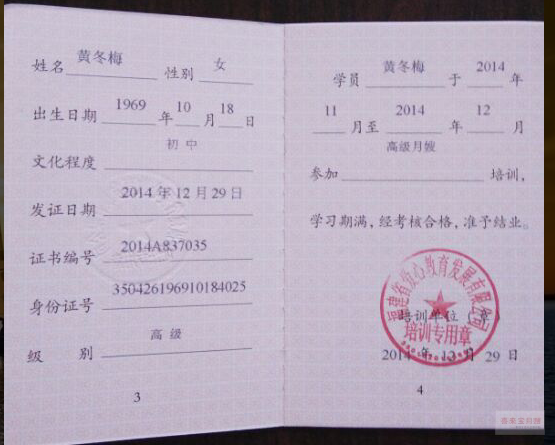 姓名 黄冬梅 性别 女
出生日期 1969 年 10 月 18 日
文化程度 初中
发证日期 2014年12月29日
证书编号 2014A837035
身份证号 350426196910184025
级别 高级
3
学员 黄冬梅 于 2014 年
11 月至 2014 年 12 月
参加 高级月嫂 培训,
学习期满,经考核合格,准予结业。
培训单位(章)
培训专用章
2014 年 12 月 29 日
4